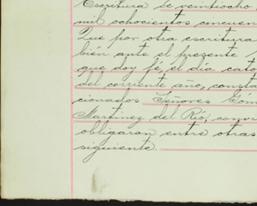 Escritura de veintiocho
mil ochocientos cincuen
Que por otra escritura
bién ante el presente
que doy fé, el día cato
del corriente año, consta
cionados Señores Góm
Martinez del Rio, conv
obligaron entre otras
siguiente